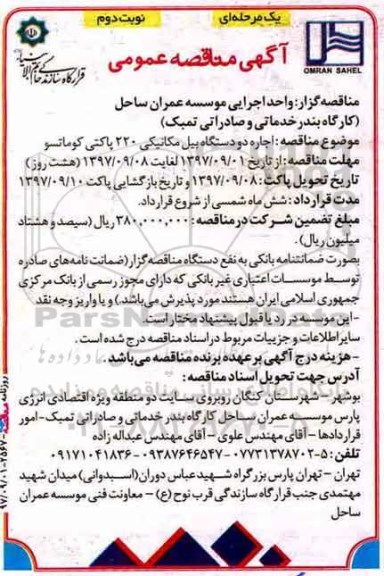 یک مرحله‌ای
نوبت دوم
OMRAN SAHEL
آگهی مناقصه عمومی
مناقصه گزار: واحد اجرایی موسسه عمران ساحل
(کارگاه بندر خدماتی و صادراتی تمبک)
موضوع مناقصه: اجاره دو دستگاه بیل مکانیکی ۲۲۰ پاکتی کوماتسو
مهلت مناقصه: از تاریخ ۱۳۹۷/۰۹/۰۱ لغایت ۱۳۹۷/۰۹/۰۸ (هشت روز)
تاریخ تحویل پاکت: ۱۳۹۷/۰۹/۰۸ و تاریخ بازگشایی پاکت ۱۳۹۷/۰۹/۱۰
مدت قرارداد: شش ماه شمسی از شروع قرارداد.
مبلغ تضمین شرکت در مناقصه: ۳۸۰,۰۰۰,۰۰۰ ریال (سیصد و هشتاد
میلیون ریال).
بصورت ضمانتنامه بانکی به نفع دستگاه مناقصه گزار (ضمانت نامه‌های صادره
توسط موسسات اعتباری غیر بانکی که دارای مجوز رسمی از بانک مرکزی
جمهوری اسلامی ایران هستند مورد پذیرش می‌باشد.) و یا واریز وجه نقد
-این موسسه در رد یا قبول پیشنهاد مختار است.
سایر اطلاعات و جزییات مربوط در اسناد مناقصه درج شده است.
- هزینه درج آگهی بر عهده برنده مناقصه می‌باشد.
آدرس جهت تحویل اسناد مناقصه:
بوشهر- شهرستان کنگان روبروی سایت دو منطقه ویژه اقتصادی انرژی
پارس موسسه عمران ساحل کارگاه بندر خدماتی و صادراتی تمبک- امور
قراردادها - آقای مهندس علوی - آقای مهندس عبداله زاده
تلفن: ۵-۰۷۷۳۱۳۷۸۷۰۲ -۰۹۳۸۷۶۴۶۵۴۷ -۰۹۱۷۱۰۴۱۸۳۶
تهران - تهران پارس بزرگراه شهید عباس دوران (اسبدوانی) میدان شهید
مهتمدی جنب قرارگاه سازندگی قرب نوح (ع) - معاونت فنی موسسه عمران
ساحل
ParsNamadData